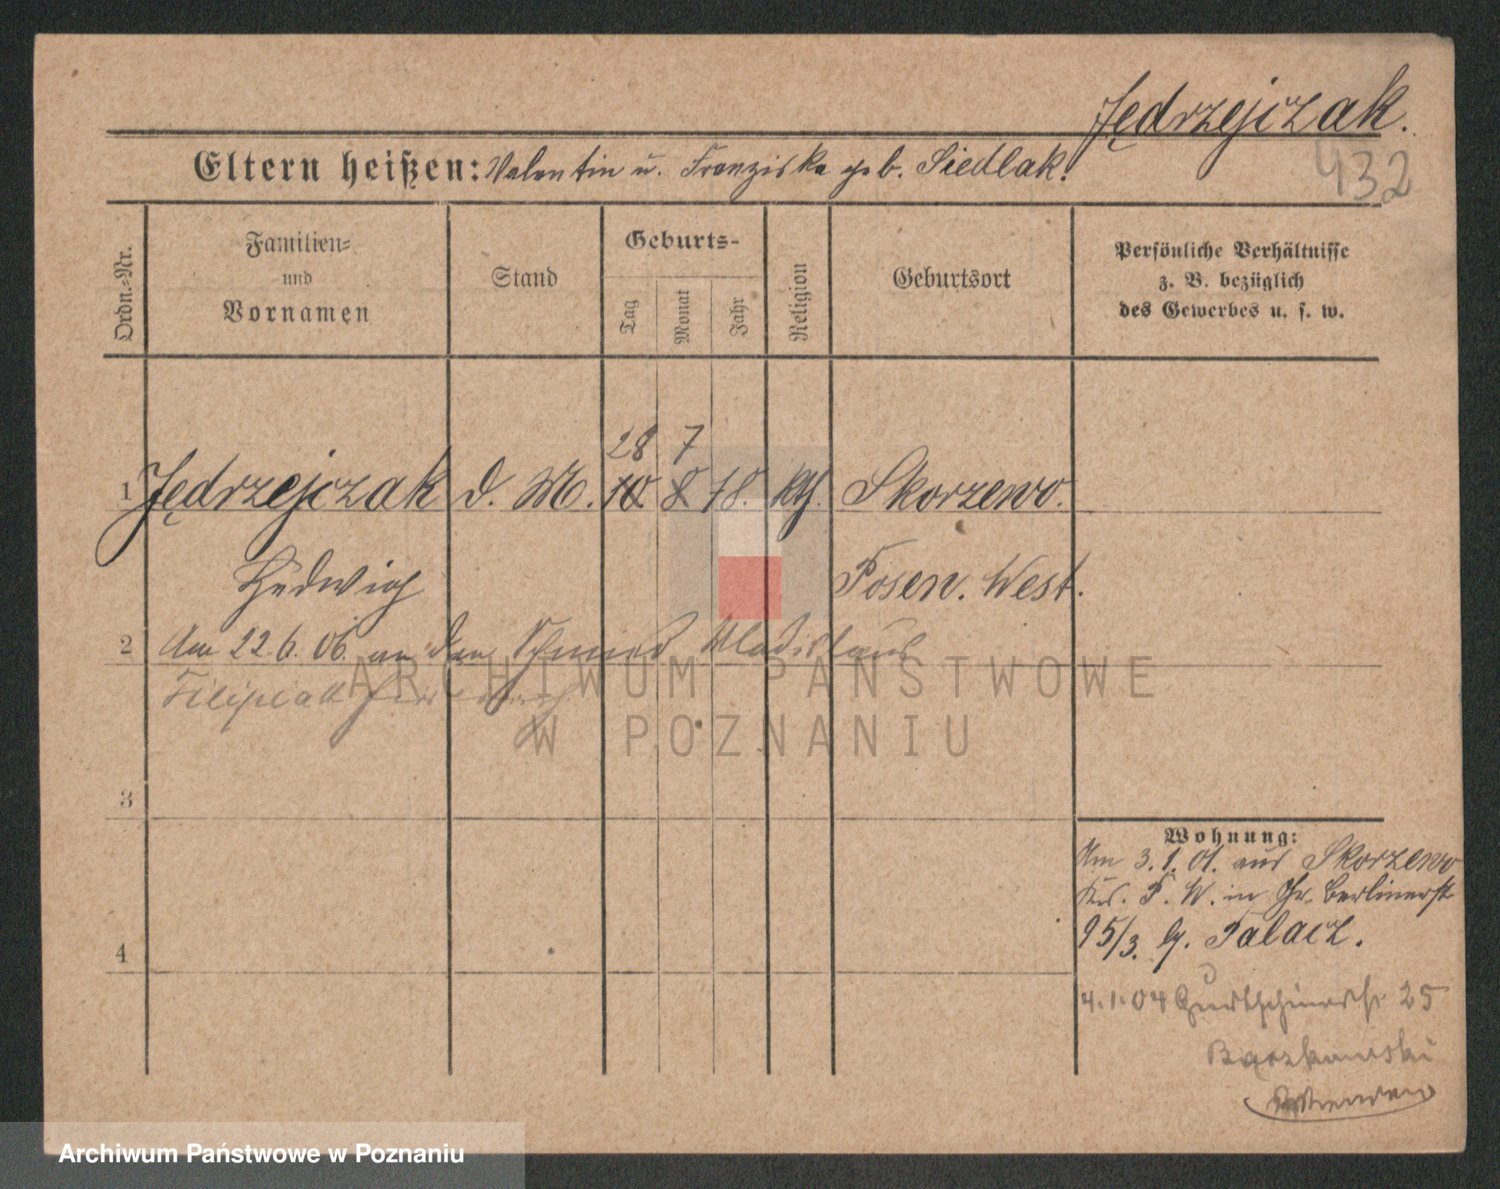 Jędrzejczak.
432
Eltern heißen: Valentin u. Franziska geb. Siedlak.
Ordn.-Nr.
Familien-
und
Vornamen
Stand
Geburts-
Tag
Monat
Jahr
Religion
Geburtsort
Persönliche Verhältnisse
z. B. bezüglich
des Gewerbes u. s. w.
28 7
1 Jędrzejczak d. M. 10 8 78. kth. Skorzewo.
Hedwig Posen. West.
2 Am 22.6.06. an den Schmied Wladislaus
Filipiak
3
4
Wohnung:
Am 3.1.01. aus Skorzewo
Krs. P. W. in Gr. Berlinerst
95/3. b. Palacz.
4.1.04 25
ARCHIWUM PAŃSTWOWE
W POZNANIU
Archiwum Państwowe w Poznaniu